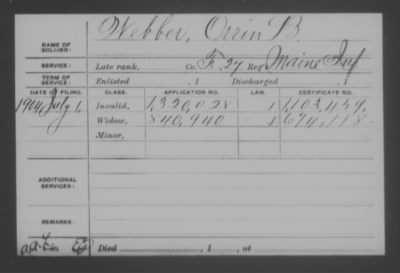 Webber, Orrin B.
NAME OF SOLDIER:
SERVICE: Late rank, Co. F. 27 Reg't Maine Inf
TERM OF SERVICE: Enlisted , 1 Discharged , 1
DATE OF FILING. CLASS. APPLICATION NO. LAW. CERTIFICATE NO.
1904 July 6 Invalid, 1,320,028 1,103,459
Widow, 840,940 674,118
Minor,
ADDITIONAL SERVICES:
REMARKS:
Died , 1 , at